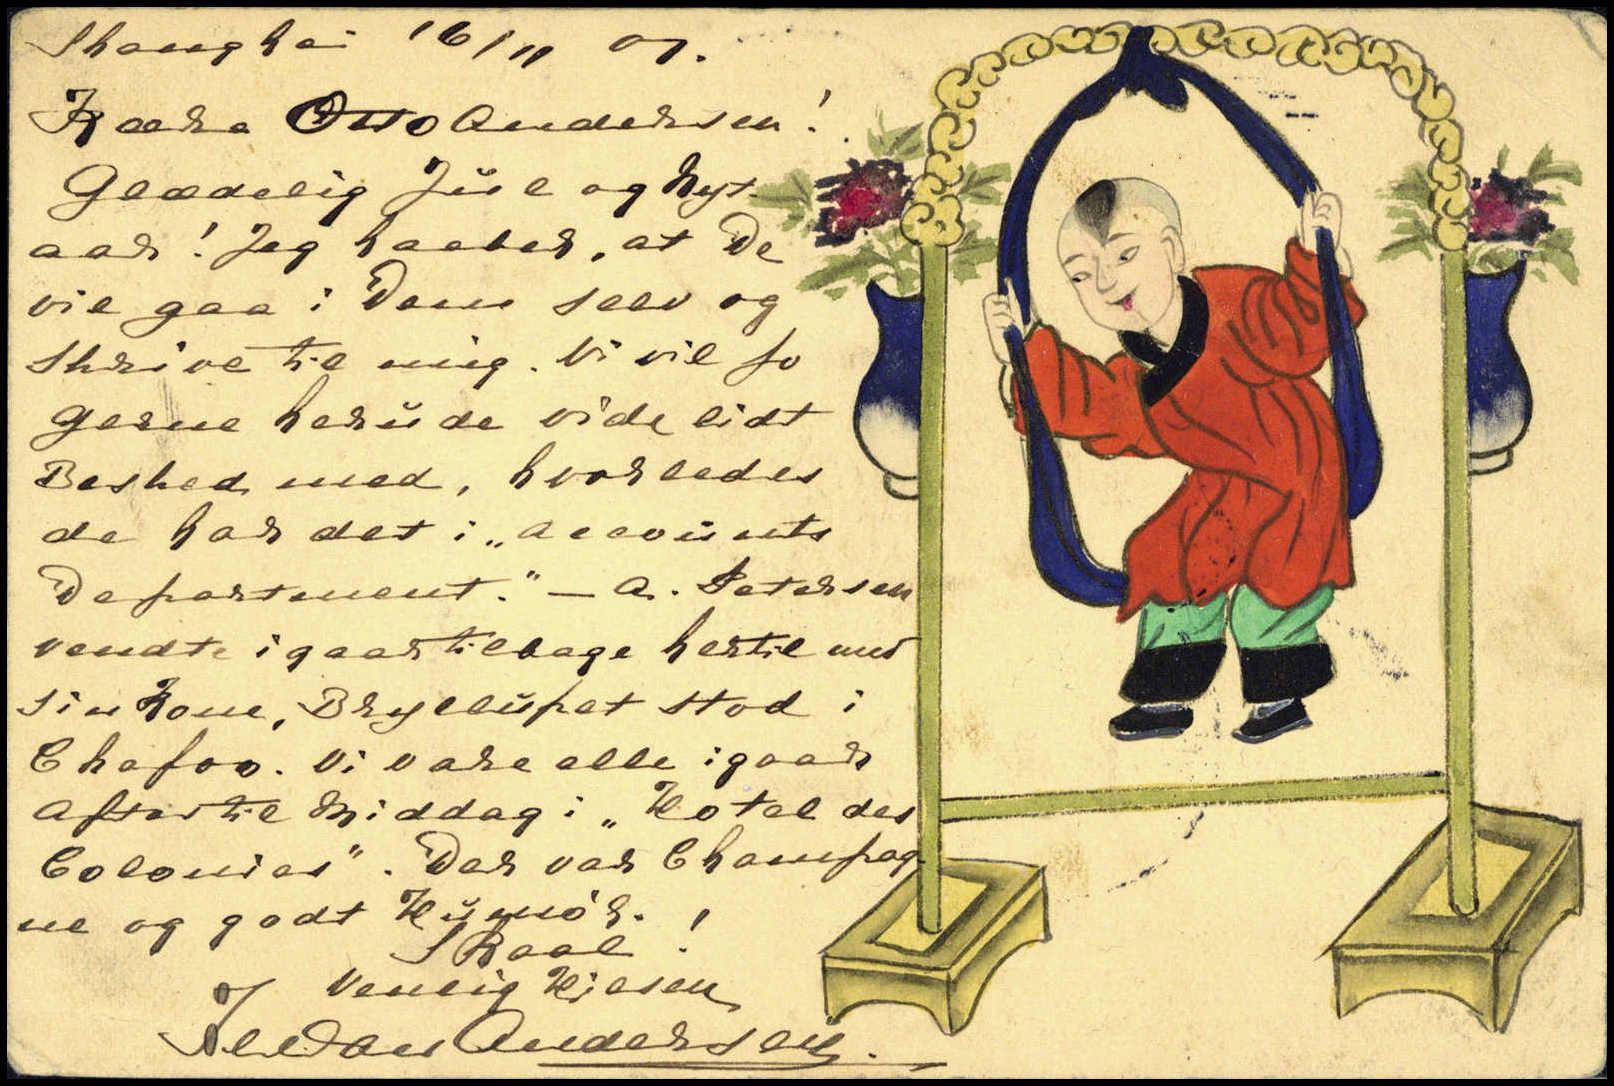 Shanghai 16/11 07.
Kære Otto Andersen!
Glædelig Jul og Nyt
aar! Jeg haaber, at De
vil gaa i Dem selv og
skrive til mig. Vi vil so
gerne herude vide lidt
Besked med, hvorledes
de har det i „Accounts
Department." — A. Petersen
vendte igaar tilbage hertil med
sin Kone, Brylluppet stod i
Chefoo. Vi vare alle igaar
Aftes til Middag i „Hotel des
Colonies". Der var Champag
ne og godt Humør.
Skaal!
Venlig Hilsen
Andersen.